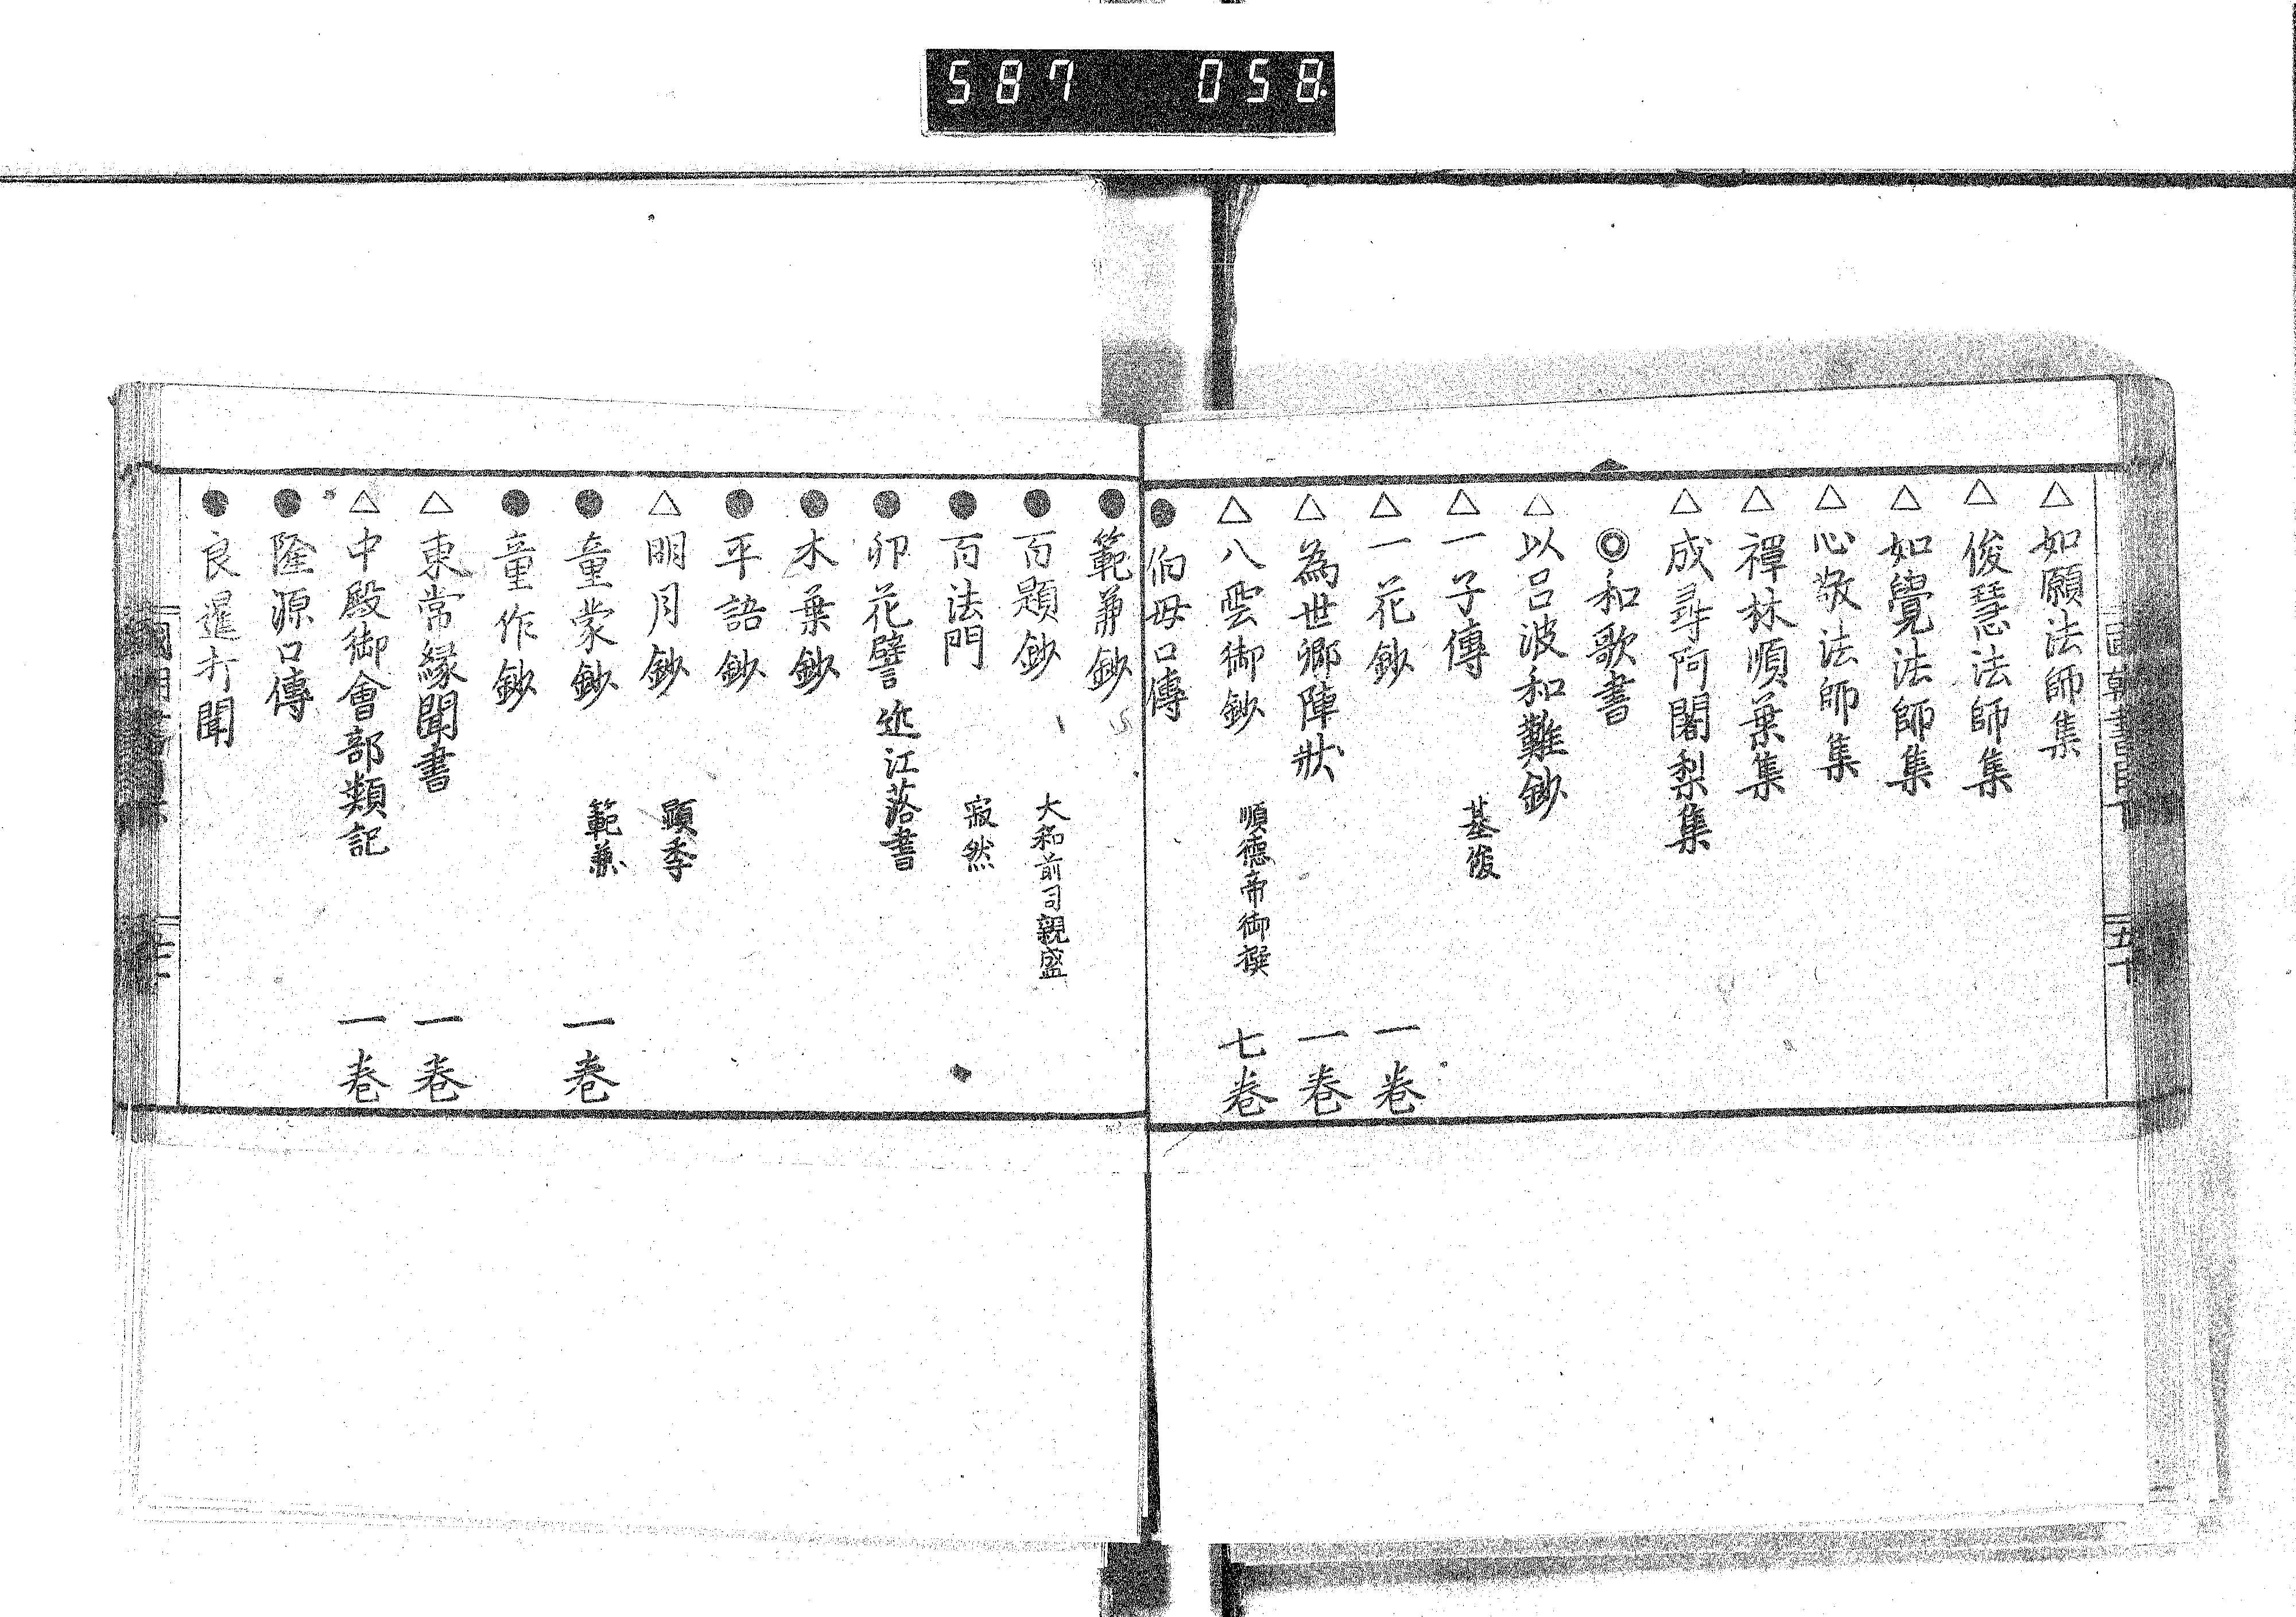 587 058.
△如願法師集
△俊慧法師集
△如覺法師集
△心敬法師集
△禪林順葉集
△成尋阿闍梨集
◎和歌書
△以呂波和難鈔
△一子傳 基俊
△一花鈔 一卷
△為世卿陣狀 一卷
△八雲御鈔 順德帝御撰 七卷
●伯母口傳
●範兼鈔
●百題鈔 大和前司親盛
●百法門 寂然
●卯花譬 近江落書
●木葉鈔
●平語鈔
△明月鈔 顕季
●童蒙鈔 範兼 一卷
●童作鈔
△東常縁聞書 一卷
△中殿御會部類記 一卷
●隆源口傳
●良暹打聞